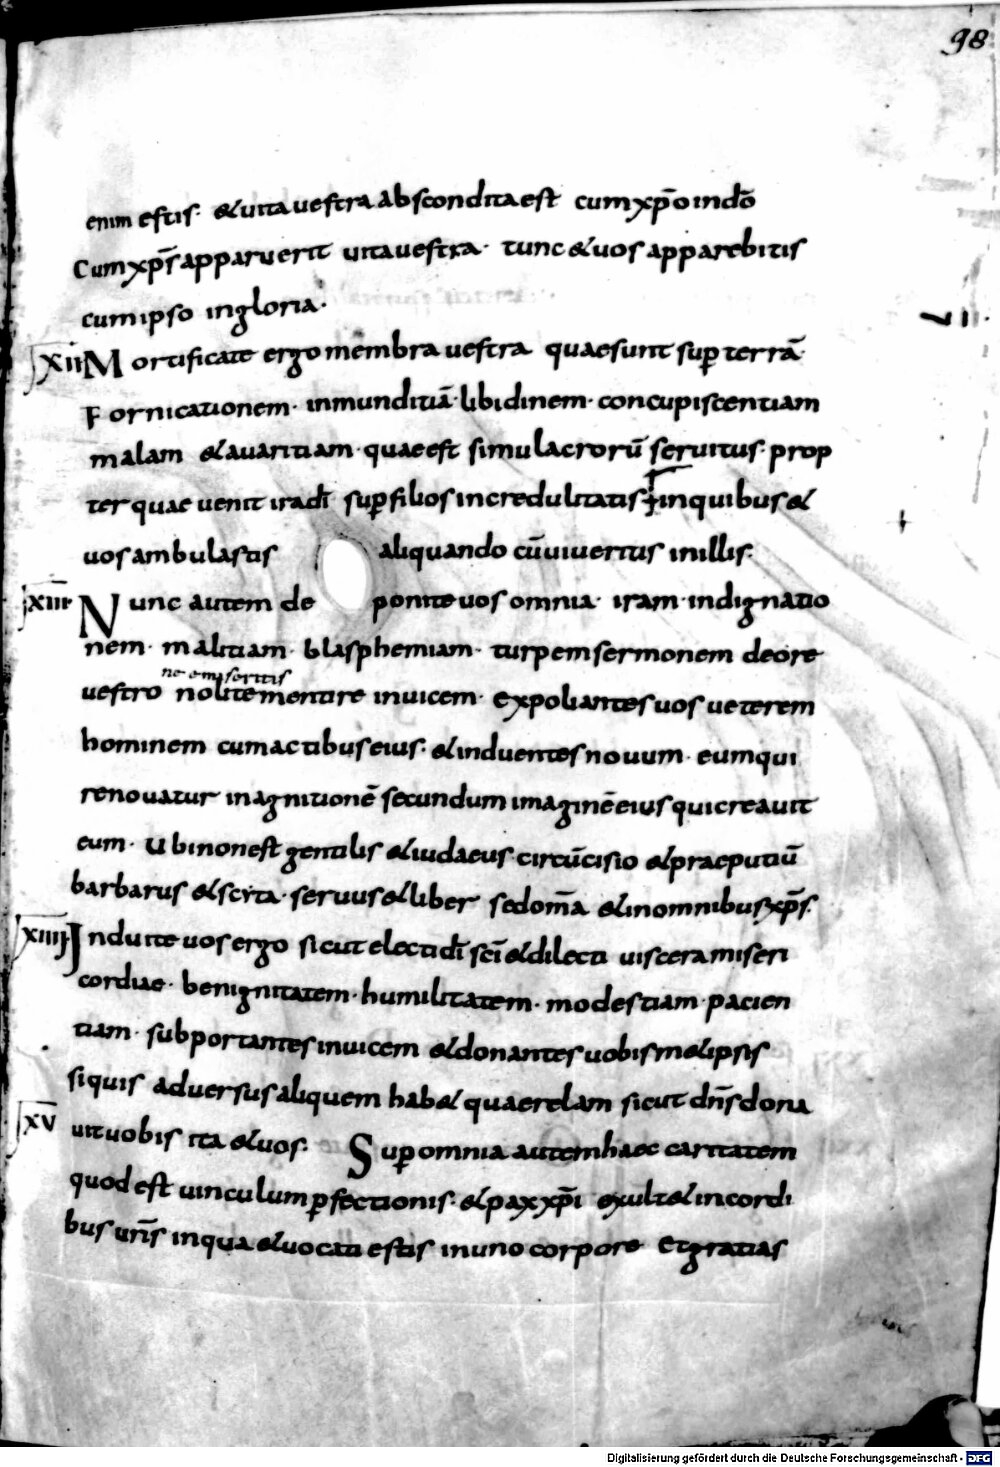 98
enim estis· & uita uestra abscondita est cum xp̄o in dō
Cum xp̄s apparuerit uita uestra· tunc & uos apparebitis
cum ipso in gloria·
XII Mortificate ergo membra uestra quae sunt sup̄ terrā·
Fornicationem· inmunditiā· libidinem· concupiscentiam
malam & auaritiam· quae est simulacrorū seruitus· prop
ter quae uenit ira dī sup̄ filios incredulitatis in quibus &
uos ambulastis aliquando cū uiuertus in illis·
XIII Nunc autem deponite uos omnia· iram· indignatio
nem· malitiam· blasphemiam· turpem sermonem de ore
uestro nolite mentire inuicem· expoliantes uos ueterem
hominem cum actibus eius· & induentes nouum· eum qui
renouatur in agnitionē secundum imaginē eius qui creauit
eum· Ubi non est gentilis & iudaeus· circūcisio & praeputiū
barbarus & scyta· seruus & liber sed om̄a & in omnibus xp̄s·
XIIII Induite uos ergo sicut electi dī sc̄i & dilecti uiscera miseri
cordiae· benignitatem· humilitatem· modestiam· pacien
tiam· subportantes inuicem & donantes uobism&ipsis
si quis aduersus aliquem hab& quaerelam sicut dn̄s dona
XV uit uobis ita & uos· Sup̄ omnia autem haec caritatem
quod est uinculum p̄fectionis· & pax xp̄i exult& in cordi
bus ur̄is in qua & uocati estis in uno corpore Et gratias
Digitalisierung gefördert durch die Deutsche Forschungsgemeinschaft - DFG